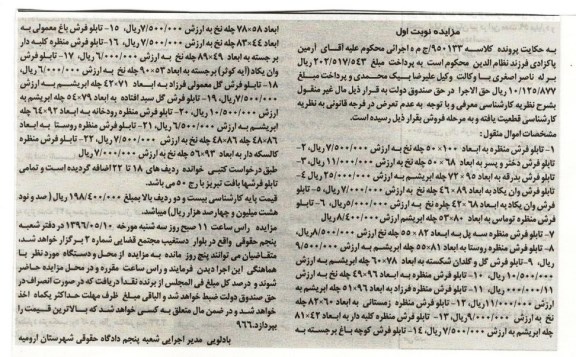 مزایده نوبت اول
به حکایت پرونده کلاسه ۹۵۰۱۳۳/ج م ه اجرائی محکوم علیه آقای آرمین
پاکزادی فرزند نظام الدین محکوم است به پرداخت مبلغ ۲۰۲/۵۱۷/۵۴۳ ریال
بر له ناصر اصغری با وکالت وکیل علیرضا بیک محمدی و پرداخت مبلغ
۱۰/۱۲۵/۸۷۷ ریال حق الاجرا در حق صندوق دولت به قرار ذیل مال غیر منقول
بشرح نظریه کارشناسی معرفی و با توجه به عدم تعرض در فرجه قانونی به نظریه
کارشناسی قطعیت یافته و به مرحله فروش بقرار ذیل رسیده است.
مشخصات اموال منقول:
۱- تابلو فرش منظره به ابعاد ۱۰۰×۵۰ چله نخ به ارزش ۷/۵۰۰/۰۰۰ ریال، ۲-
تابلو فرش دختر و پسر به ابعاد ۶۸×۵۰ چله نخ به ارزش ۱۱/۰۰۰/۰۰۰ ریال، ۳-
تابلو فرش بدرقه به ابعاد ۹۵×۷۲ چله ابریشم به ارزش ۲۵/۰۰۰/۰۰۰ ریال ۴-
تابلو فرش وان یکاد به ابعاد ۸۹×۴۶ چله نخ به ارزش ۷/۰۰۰/۰۰۰ ریال، ۵- تابلو
فرش وان یکاد به ابعاد ۶۸×۴۲ چله نخ به ارزش ۵/۰۰۰/۰۰۰ ریال، ۶- تابلو
فرش منظره توماس به ابعاد ۸۰×۵۳ چله ابریشم ارزش ۸/۴۰۰/۰۰۰ ریال
۷- تابلو فرش منظره سه پل به ابعاد ۸۲×۵۵ چله نخ به ارزش ۸/۵۰۰/۰۰۰ ریال،
۸- تابلو فرش منظره روستا به ابعاد ۸۱×۵۵ چله ابریشم به ارزش ۹/۵۰۰/۰۰۰
ریال، ۹- تابلو فرش گل و گلدان شکسته به ابعاد ۷۸×۶۰ چله ابریشم به ارزش
۱۰/۵۰۰/۰۰۰ ریال، ۱۰- تابلو فرش منظره به ابعاد ۹۶×۴۹ چله نخ به ارزش
۱۱/۰۰۰/۰۰۰ ریال، ۱۱- تابلو فرش منظره فرزاد به ابعاد ۹۶×۵۱ چله ابریشم به
ارزش ۱۱/۰۰۰/۰۰۰ ریال، ۱۲- تابلو فرش منظره زمستانی به ابعاد ۶۰×۸۲ چله
نخ به ارزش ۸/۵۰۰/۰۰۰ ریال، ۱۳- تابلو فرش منظره کلبه دار به ابعاد ۴۲×۸۱
چله ابریشم به ارزش ۷/۵۰۰/۰۰۰ ریال، ۱۴- تابلو فرش کوچه باغ برجسته به
ابعاد ۵۸×۷۸ چله نخ به ارزش ۷/۵۰۰/۰۰۰ ریال، ۱۵- تابلو فرش باغ معمولی به
ابعاد ۴۴×۸۳ چله نخ به ارزش ۷/۵۰۰/۰۰۰ ریال، ۱۶- تابلو فرش منظره کلبه دار
برجسته به ابعاد ۴۹×۸۹ چله نخ به ارزش ۶/۰۰۰/۰۰۰ ریال، ۱۷- تابلو فرش
وان یکاد (آیه کوثر) برجسته به ابعاد ۵۳×۹۰ چله نخ به ارزش ۶/۰۰۰/۰۰۰ ریال،
۱۸- تابلو فرش گل معمولی فرزاد به ابعاد ۷۱×۴۲ چله ابریشم به ارزش
۷/۵۰۰/۰۰۰ ریال، ۱۹- تابلو فرش گل سبد افتاده به ابعاد ۷۹×۵۴ چله ابریشم به
ارزش ۱۰/۵۰۰/۰۰۰ ریال، ۲۰- تابلو فرش منظره رودخانه به ابعاد ۹۲×۶۴ چله
ابریشم به ارزش ۶/۵۰۰/۰۰۰ ریال، ۲۱- تابلو فرش منظره روستا به ابعاد
۸۶×۴۸ چله ابریشم به ارزش ۷/۵۰۰/۰۰۰ ریال، ۲۲- تابلو فرش منظره
کالسکه دار به ابعاد ۹۳×۵۶ چله نخ به ارزش ۷/۰۰۰/۰۰۰ ریال
طبق درخواست کتبی خوانده ردیف های ۱۸ تا ۲۲ اضافه گردیده است و تمامی
تابلو فرشها بافت تبریز با رج ۵۰ می باشد.
قیمت پایه کارشناسی بیست و دو ردیف بالا بمبلغ ۱۹۸/۴۰۰/۰۰۰ ریال (صد و نود
هشت میلیون و چهارصد هزار ریال) میباشد.
مزایده راس ساعت ۱۱ صبح روز سه شنبه مورخه ۱۳۹۶/۰۵/۱۰ در دفتر شعبه
پنجم حقوقی واقع در بلوار دستغیب مجتمع قضایی شماره ۲ برگزار خواهد شد،
متقاضیان می توانند پنج روز مانده به مزایده از محل و دستگاه مورد نظر با
هماهنگی این اجرا دیدن فرمایند و راس ساعت مقرره و در محل مزایده حاضر
شوند و درصد کل مبلغ فی المجلس از برنده نقدا دریافت که در صورت انصراف در
حق صندوق دولت ضبط خواهد شد و الباقی مبلغ ظرف مهلت حداکثر یکماه اخذ
خواهد شد و در ضمن مال متعلق به کسی خواهد شد که بالاترین قیمت را
بپردازد. ۹۶۶
بادلویی مدیر اجرایی شعبه پنجم دادگاه حقوقی شهرستان ارومیه